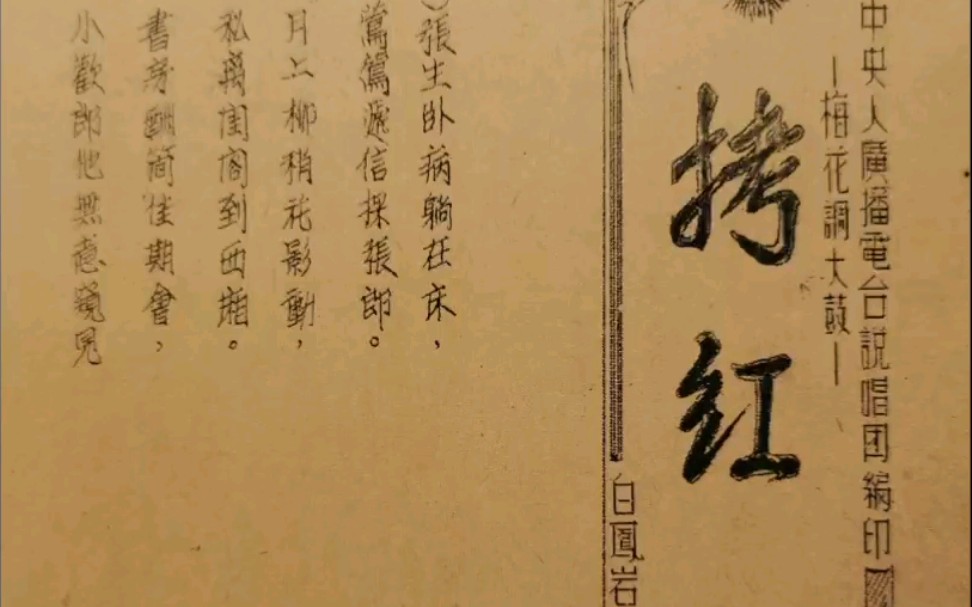 中央人廣播電台説唱团編印
—梅花調大鼓—
拷红
白鳳岩
張生卧病躺在床，
鶯鶯遞信探張郎。
月上柳稍花影動，
私离閨阁到西廂。
書房酬简佳期會，
小歡郎他無意窺見